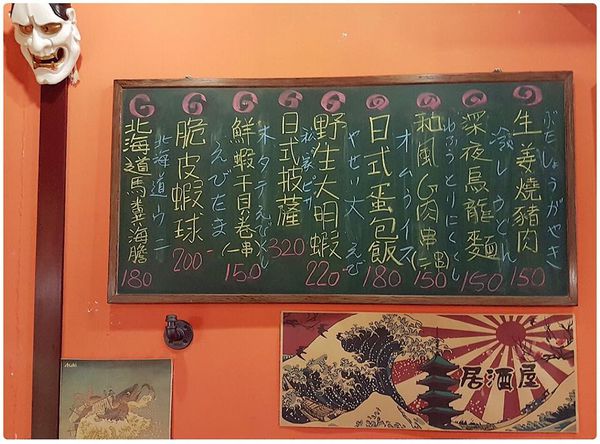 生姜燒豬肉
ぶたしょうがやき
150
深夜烏龍麵
150
和風心肉串
(二串)
150
日式蛋包飯
オムライス
180
野生大明蝦
やせい大えび
220
日式披薩
320
鮮蝦干貝卷
(一串)
ホタテえびくし
150
脆皮蝦球
えびだま
200
北海道馬糞海膽
北海道ウニ
180
居酒屋
Asahi